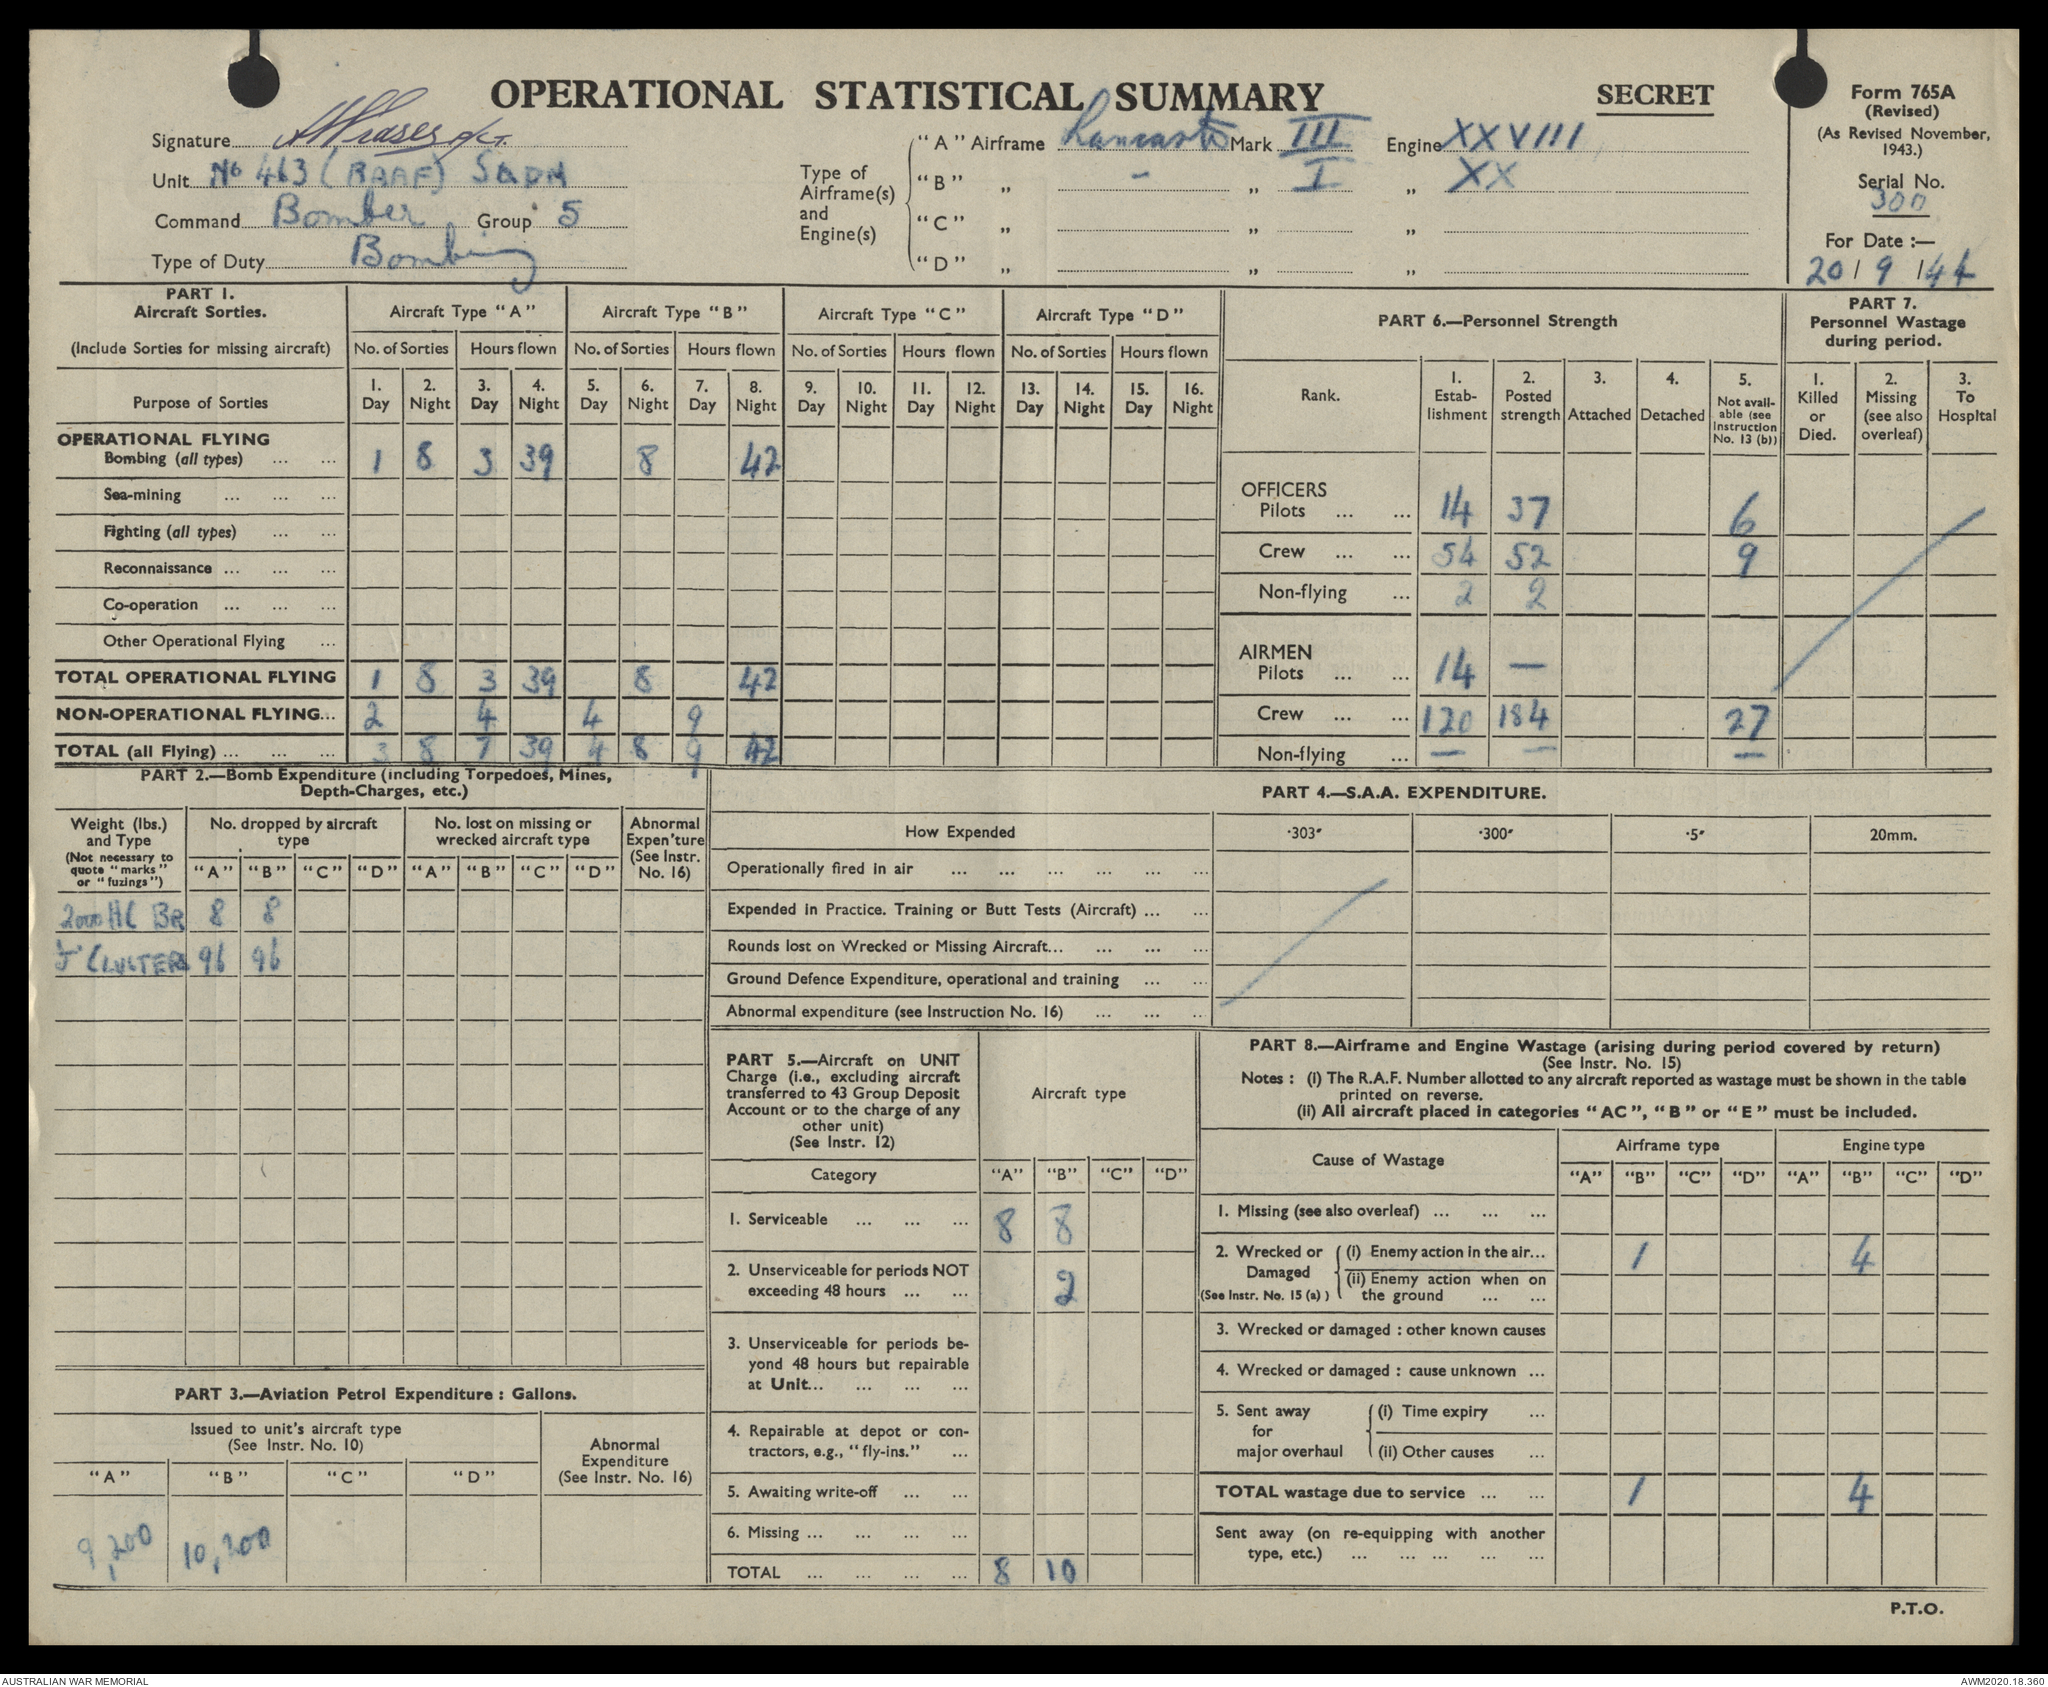 OPERATIONAL STATISTICAL SUMMARY
SECRET
Form 765A
(Revised)
(As Revised November, 1943.)
Serial No.
300
For Date :—
20/9/44
Signature
Unit No 463 (RAAF) SQDN
Command Bomber Group 5
Type of Duty Bombing
Type of Airframe(s) and Engine(s)
"A" Airframe Lancaster Mark III Engine XXVIII
"B" „ - „ I „ XX
"C" „ „ „
"D" „ „ „
PART 1.
Aircraft Sorties.
(Include Sorties for missing aircraft)
Purpose of Sorties
Aircraft Type "A" Aircraft Type "B" Aircraft Type "C" Aircraft Type "D"
No. of Sorties Hours flown No. of Sorties Hours flown No. of Sorties Hours flown No. of Sorties Hours flown
1. 2. 3. 4. 5. 6. 7. 8. 9. 10. 11. 12. 13. 14. 15. 16.
Day Night Day Night Day Night Day Night Day Night Day Night Day Night Day Night
OPERATIONAL FLYING
Bombing (all types) ... ... 1 8 3 39 8 42
Sea-mining ... ... ...
Fighting (all types) ... ...
Reconnaissance ... ... ...
Co-operation ... ... ...
Other Operational Flying ...
TOTAL OPERATIONAL FLYING 1 8 3 39 8 42
NON-OPERATIONAL FLYING... 2 4 4 9
TOTAL (all Flying) ... ... ... 3 8 7 39 4 8 9 42
PART 6.—Personnel Strength
Rank.
1. Estab-lishment
2. Posted strength
3. Attached
4. Detached
5. Not avail-able (see Instruction No. 13 (b))
OFFICERS
Pilots ... ... 14 37 6
Crew ... ... 54 52 9
Non-flying ... 2 2
AIRMEN
Pilots ... ... 14 —
Crew ... ... 120 184 27
Non-flying ... — — —
PART 7.
Personnel Wastage
during period.
1. Killed or Died.
2. Missing (see also overleaf)
3. To Hospital
PART 2.—Bomb Expenditure (including Torpedoes, Mines,
Depth-Charges, etc.)
Weight (lbs.) and Type
(Not necessary to quote "marks" or "fuzings")
No. dropped by aircraft type
No. lost on missing or wrecked aircraft type
Abnormal Expen'ture (See Instr. No. 16)
"A" "B" "C" "D" "A" "B" "C" "D"
2000 HC 8 8
CLUSTERS 96 96
PART 3.—Aviation Petrol Expenditure : Gallons.
Issued to unit's aircraft type
(See Instr. No. 10)
Abnormal Expenditure (See Instr. No. 16)
"A" "B" "C" "D"
9,200 10,200
PART 4.—S.A.A. EXPENDITURE.
How Expended ·303″ ·300″ ·5″ 20mm.
Operationally fired in air ... ... ... ... ... ...
Expended in Practice. Training or Butt Tests (Aircraft) ... ...
Rounds lost on Wrecked or Missing Aircraft... ... ... ...
Ground Defence Expenditure, operational and training ... ...
Abnormal expenditure (see Instruction No. 16) ... ... ...
PART 5.—Aircraft on UNIT
Charge (i.e., excluding aircraft
transferred to 43 Group Deposit
Account or to the charge of any
other unit)
(See Instr. 12)
Aircraft type
Category "A" "B" "C" "D"
1. Serviceable ... ... ... 8 8
2. Unserviceable for periods NOT
exceeding 48 hours ... ... 2
3. Unserviceable for periods be-
yond 48 hours but repairable
at Unit... ... ... ...
4. Repairable at depot or con-
tractors, e.g., "fly-ins." ...
5. Awaiting write-off ... ...
6. Missing ... ... ... ...
TOTAL ... ... ... ... 8 10
PART 8.—Airframe and Engine Wastage (arising during period covered by return)
(See Instr. No. 15)
Notes : (i) The R.A.F. Number allotted to any aircraft reported as wastage must be shown in the table
printed on reverse.
(ii) All aircraft placed in categories "AC", "B" or "E" must be included.
Cause of Wastage Airframe type Engine type
"A" "B" "C" "D" "A" "B" "C" "D"
1. Missing (see also overleaf) ... ... ...
2. Wrecked or Damaged (See Instr. No. 15 (a) )
(i) Enemy action in the air... 1 4
(ii) Enemy action when on
the ground ... ...
3. Wrecked or damaged : other known causes
4. Wrecked or damaged : cause unknown ...
5. Sent away for major overhaul
(i) Time expiry ...
(ii) Other causes ...
TOTAL wastage due to service ... ... 1 4
Sent away (on re-equipping with another
type, etc.) ... ... ... ... ...
P.T.O.
AUSTRALIAN WAR MEMORIAL
AWM2020.18.360